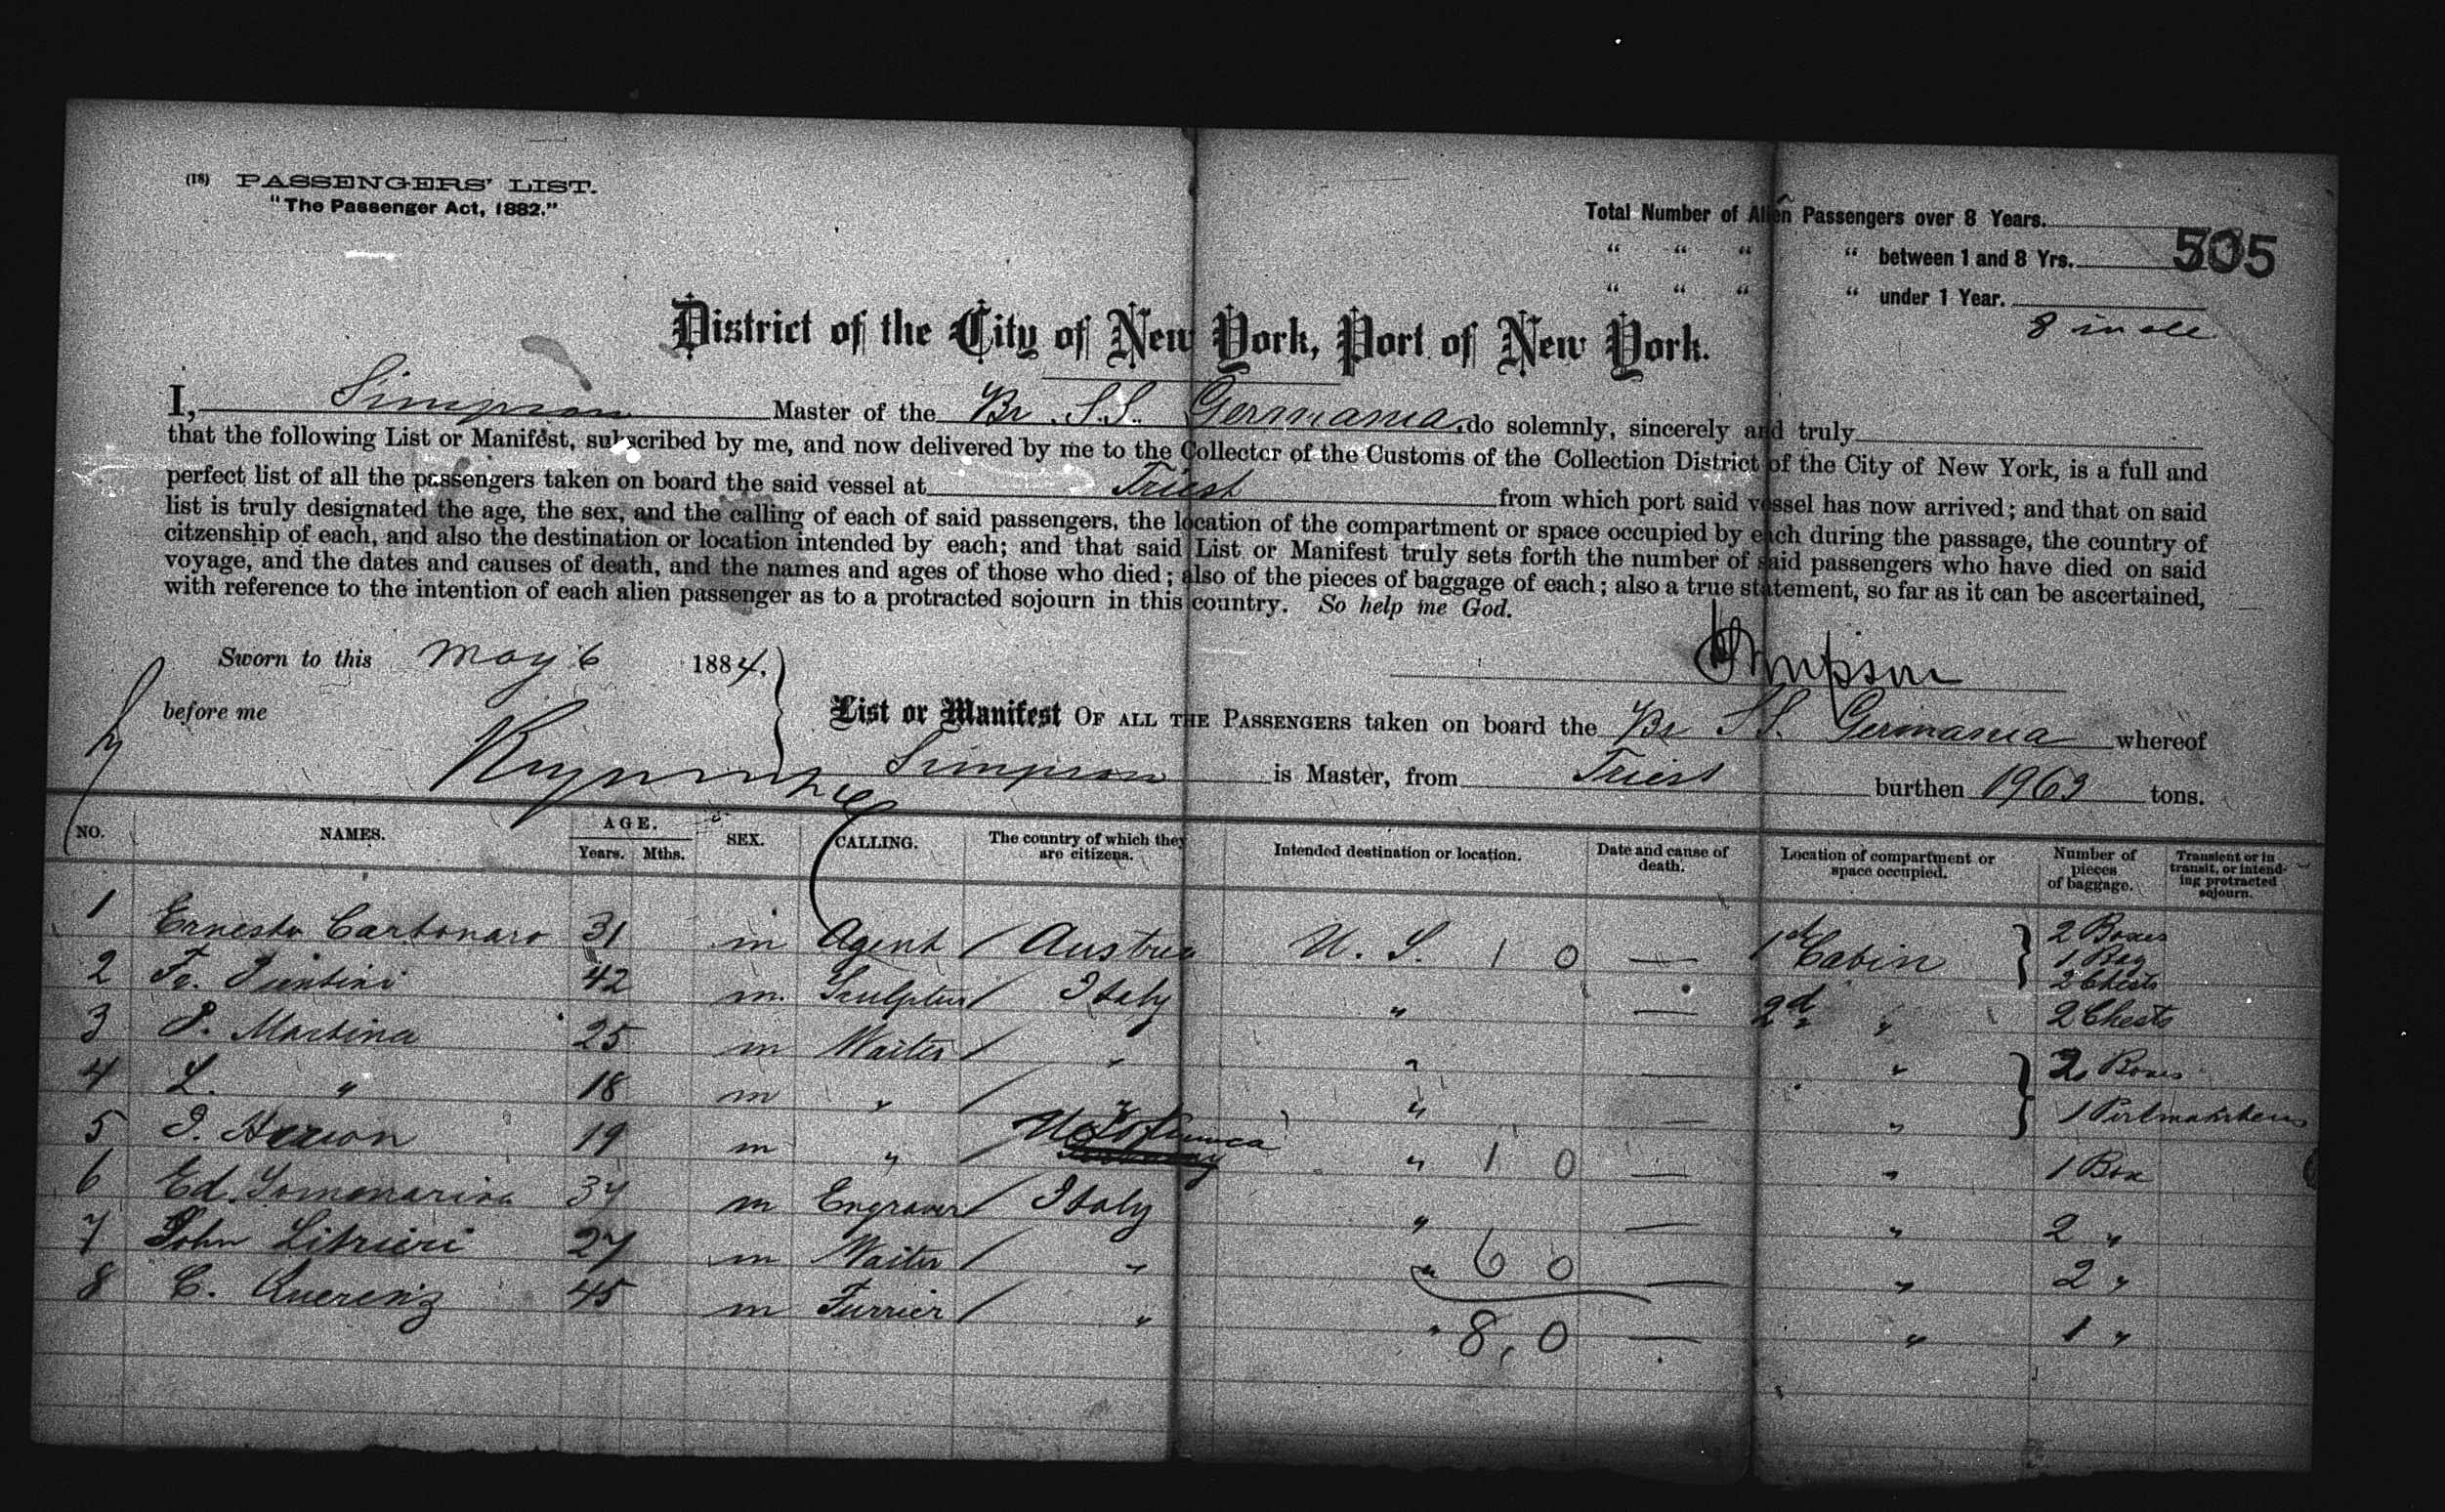 (18) PASSENGERS' LIST.
"The Passenger Act, 1882."
Total Number of Alien Passengers over 8 Years.
" " " " between 1 and 8 Yrs.
505
" " " " under 1 Year.
8 in all
District of the City of New York, Port of New York.
I, Simpson Master of the Br S.S. Germania do solemnly, sincerely and truly
that the following List or Manifest, subscribed by me, and now delivered by me to the Collector of the Customs of the Collection District of the City of New York, is a full and
perfect list of all the passengers taken on board the said vessel at Triest from which port said vessel has now arrived; and that on said
list is truly designated the age, the sex, and the calling of each of said passengers, the location of the compartment or space occupied by each during the passage, the country of
citzenship of each, and also the destination or location intended by each; and that said List or Manifest truly sets forth the number of said passengers who have died on said
voyage, and the dates and causes of death, and the names and ages of those who died; also of the pieces of baggage of each; also a true statement, so far as it can be ascertained,
with reference to the intention of each alien passenger as to a protracted sojourn in this country. So help me God.
Sworn to this May 6 1884.
Simpson
before me
List or Manifest OF ALL THE PASSENGERS taken on board the Br S.S. Germania whereof
Simpson is Master, from Triest burthen 1963 tons.
NO. NAMES. AGE. Years. Mths. SEX. CALLING. The country of which they are citizens. Intended destination or location. Date and cause of death. Location of compartment or space occupied. Number of pieces of baggage. Transient or in transit, or intending protracted sojourn.
1 Ernesto Carbonaro 31 m Agent / Austria U. S. 1 0 — 1st Cabin 2 Boxes 1 Bag 2 Chests
2 Fr. 42 m. Sculptur / Italy " — 2d " 2 Chests
3 P. Martina 25 m Waiter / " " — " 2 Boxes
4 L. " 18 m " / " " — " 1
5 19 m " / " 1 0 — " 1 Box
6 Ed. 37 m Engraver / Italy " — " 2 "
7 John 27 m Waiter / " " 6 0 — " 2 "
8 C. Querenz 45 m Furrier / " " 8,0 — " 1 "